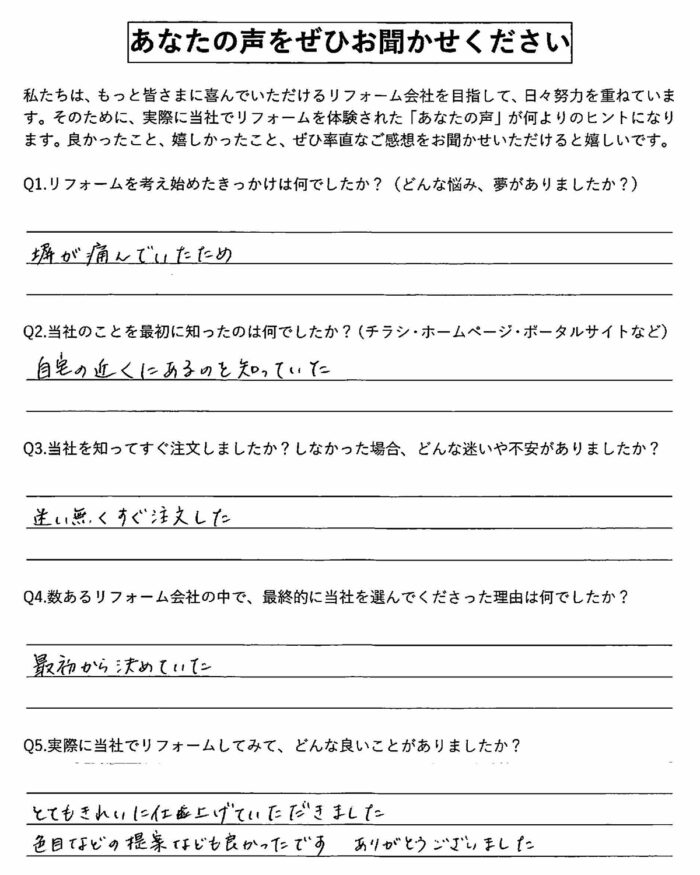 あなたの声をぜひお聞かせください
私たちは、もっと皆さまに喜んでいただけるリフォーム会社を目指して、日々努力を重ねていま
す。そのために、実際に当社でリフォームを体験された「あなたの声」が何よりのヒントになり
ます。良かったこと、嬉しかったこと、ぜひ率直なご感想をお聞かせいただけると嬉しいです。
Q1.リフォームを考え始めたきっかけは何でしたか？（どんな悩み、夢がありましたか？）
塀が痛んでいたため
Q2.当社のことを最初に知ったのは何でしたか？（チラシ・ホームページ・ポータルサイトなど）
自宅の近くにあるのを知っていた
Q3.当社を知ってすぐ注文しましたか？しなかった場合、どんな迷いや不安がありましたか？
迷い無くすぐ注文した
Q4.数あるリフォーム会社の中で、最終的に当社を選んでくださった理由は何でしたか？
最初から決めていた
Q5.実際に当社でリフォームしてみて、どんな良いことがありましたか？
とてもきれいに仕上げていただきました
色目などの提案なども良かったです ありがとうございました